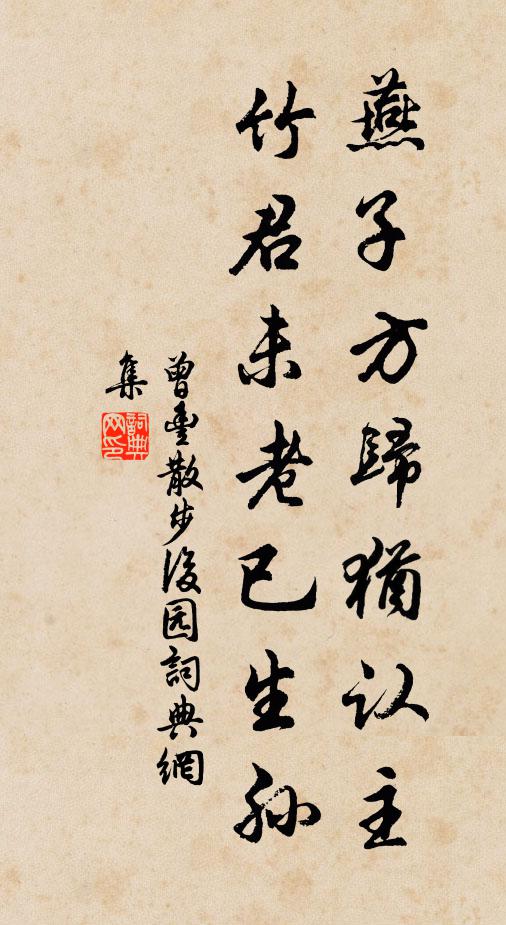 燕子方歸猶认主
竹君未老已生孙
曾豐散步後园詞典網
集
詞典
网印